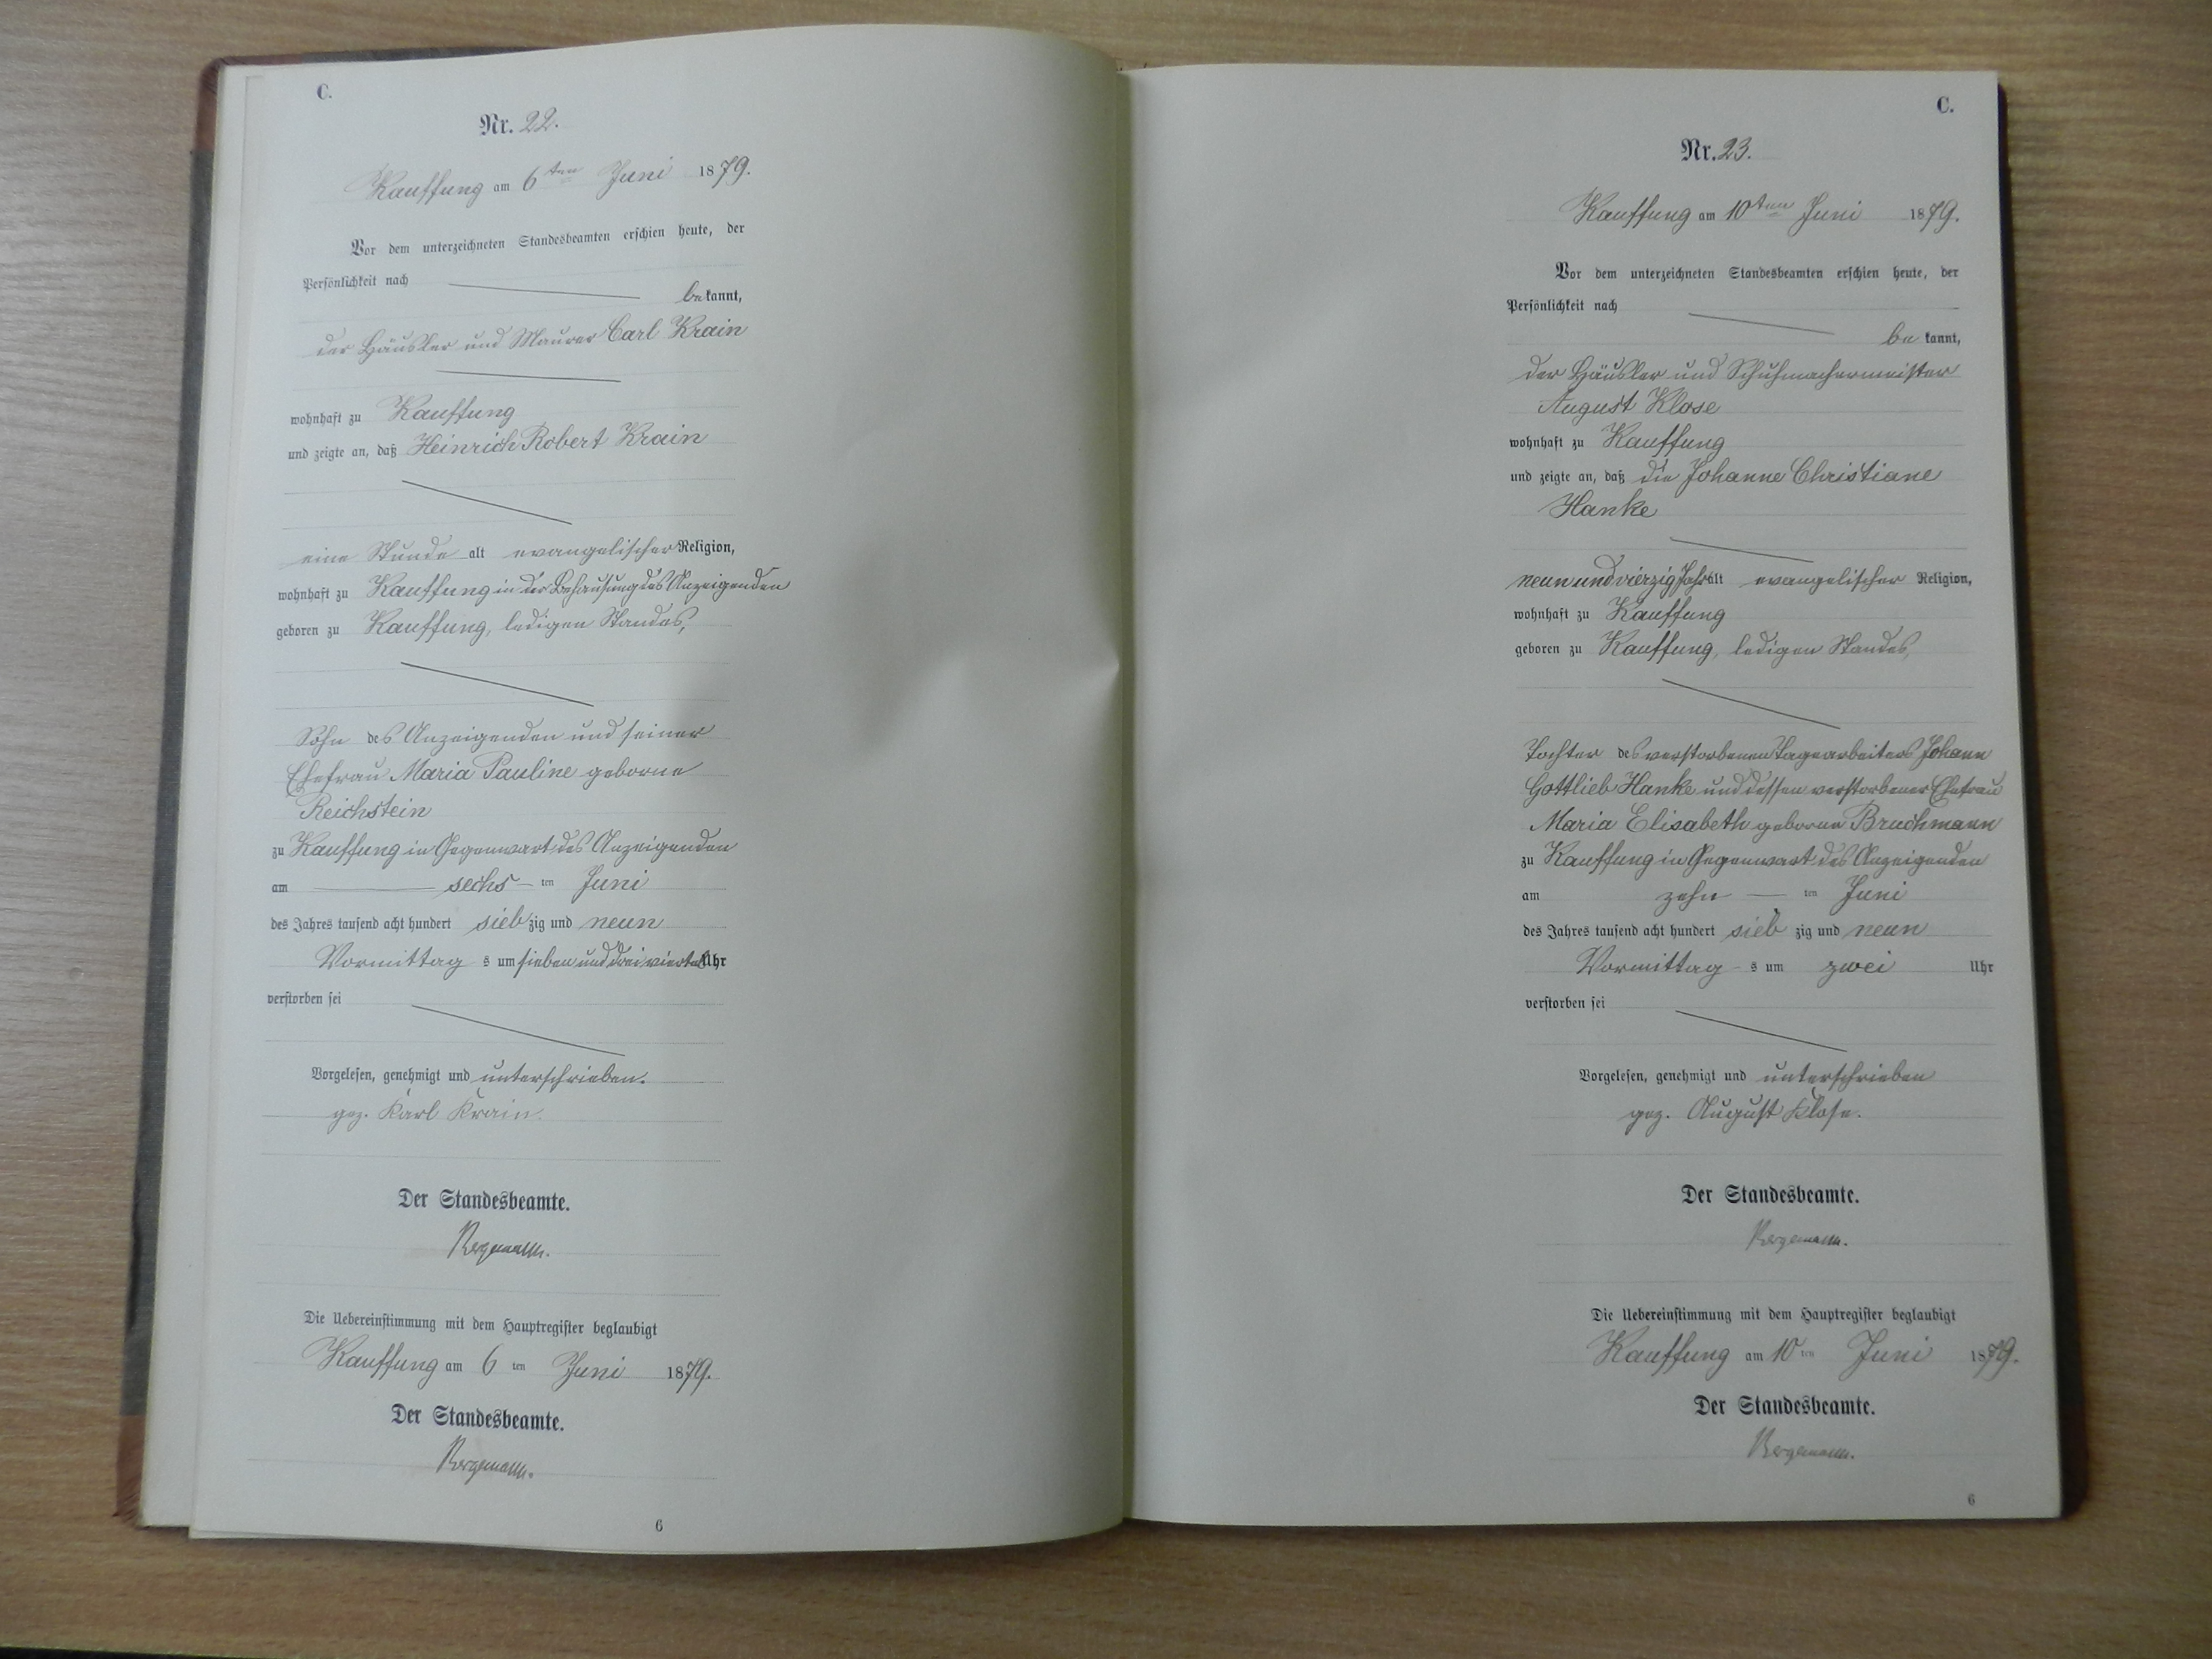 C.
Nr. 22.
Kauffung am 6ten Juni 1879.
Vor dem unterzeichneten Standesbeamten erschien heute, der
Persönlichkeit nach
bekannt,
der Häusler und Maurer Carl Krain
wohnhaft zu Kauffung
und zeigte an, daß Heinrich Robert Krain
eine Stunde alt evangelischer Religion,
wohnhaft zu Kauffung in der Behausung des Anzeigenden
geboren zu Kauffung, ledigen Standes,
Sohn des Anzeigenden und seiner
Ehefrau Maria Pauline geborne
Reichstein
zu Kauffung in Gegenwart des Anzeigenden
am sechs - ten Juni
des Jahres tausend acht hundert siebzig und neun
Vormittags um sieben und drei viertel Uhr
verstorben sei
Vorgelesen, genehmigt und unterschrieben.
gez. Karl Krain.
Der Standesbeamte.
Bergemann.
Die Uebereinstimmung mit dem Hauptregister beglaubigt
Kauffung am 6ten Juni 1879.
Der Standesbeamte.
Bergemann.
6
C.
Nr. 23.
Kauffung am 10ten Juni 1879.
Vor dem unterzeichneten Standesbeamten erschien heute, der
Persönlichkeit nach
bekannt,
der Häusler und Schuhmachermeister
August Klose
wohnhaft zu Kauffung
und zeigte an, daß die Johanne Christiane
Hanke
neun und vierzig Jahr alt evangelischer Religion,
wohnhaft zu Kauffung
geboren zu Kauffung, ledigen Standes,
Tochter des verstorbenen Tagearbeiters Johann
Gottlieb Hanke und dessen verstorbener Ehefrau
Maria Elisabeth geborne Bruchmann
zu Kauffung in Gegenwart des Anzeigenden
am zehn - ten Juni
des Jahres tausend acht hundert siebzig und neun
Vormittags um zwei Uhr
verstorben sei
Vorgelesen, genehmigt und unterschrieben
gez. August Klose.
Der Standesbeamte.
Bergemann.
Die Uebereinstimmung mit dem Hauptregister beglaubigt
Kauffung am 10ten Juni 1879.
Der Standesbeamte.
Bergemann.
6